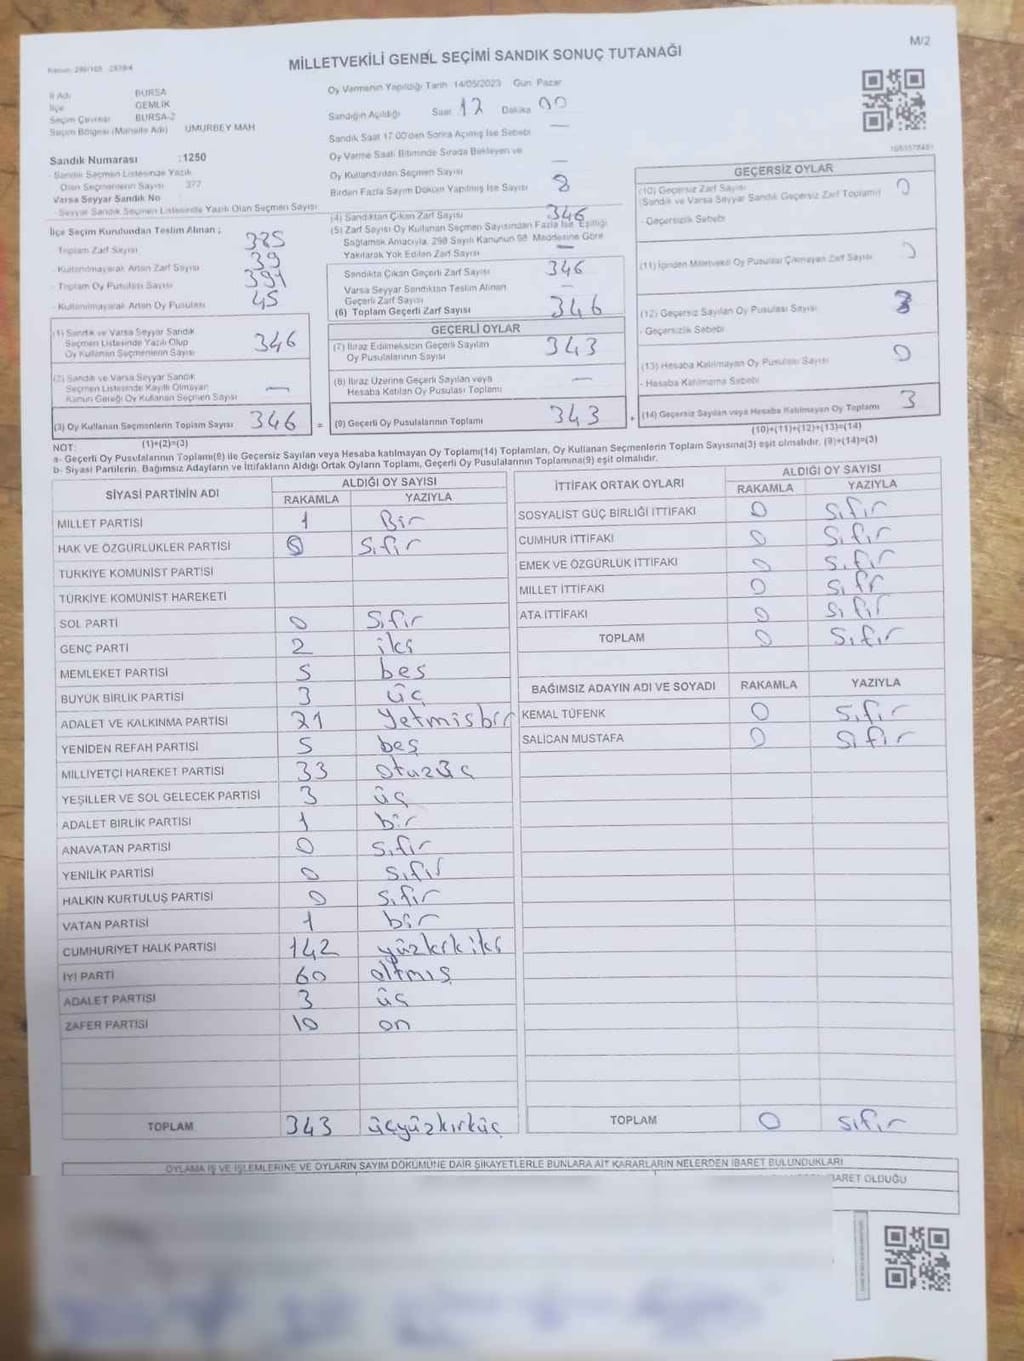 M/2
MİLLETVEKİLİ GENEL SEÇİMİ SANDIK SONUÇ TUTANAĞI
İl Adı BURSA
İlçe GEMLİK
Seçim Çevresi BURSA-2
Seçim Bölgesi (Mahalle Adı) UMURBEY MAH
Oy Vermenin Yapıldığı Tarih 14/05/2023 Gün Pazar
Sandığın Açıldığı Saat 17 Dakika 00
Sandık Saat 17.00'dan Sonra Açılmış İse Sebebi —
Oy Verme Saati Bitiminde Sırada Bekleyen ve
Oy Kullandırılan Seçmen Sayısı —
Birden Fazla Sayım Döküm Yapılmış İse Sayısı
Sandık Numarası :1250
Sandık Seçmen Listesinde Yazılı
Olan Seçmenlerin Sayısı 377
Varsa Seyyar Sandık No
Seyyar Sandık Seçmen Listesinde Yazılı Olan Seçmen Sayısı
İlçe Seçim Kurulundan Teslim Alınan ;
Toplam Zarf Sayısı 385
Kullanılmayarak Artan Zarf Sayısı 39
Toplam Oy Pusulası Sayısı 391
Kullanılmayarak Artan Oy Pusulası 45
(1) Sandık ve Varsa Seyyar Sandık
Seçmen Listesinde Yazılı Olup
Oy Kullanan Seçmenlerin Sayısı 346
(2) Sandık ve Varsa Seyyar Sandık
Seçmen Listesinde Kayıtlı Olmayan
Kanun Gereği Oy Kullanan Seçmen Sayısı —
(3) Oy Kullanan Seçmenlerin Toplam Sayısı 346
(1)+(2)=(3)
(4) Sandıktan Çıkan Zarf Sayısı 346
(5) Zarf Sayısı Oy Kullanan Seçmen Sayısından Fazla İse, Eşitliği
Sağlamak Amacıyla, 298 Sayılı Kanunun 98. Maddesine Göre
Yakılarak Yok Edilen Zarf Sayısı —
Sandıkta Çıkan Geçerli Zarf Sayısı 346
Varsa Seyyar Sandıktan Teslim Alınan
Geçerli Zarf Sayısı —
(6) Toplam Geçerli Zarf Sayısı 346
GEÇERLİ OYLAR
(7) İtiraz Edilmeksizin Geçerli Sayılan
Oy Pusulalarının Sayısı 343
(8) İtiraz Üzerine Geçerli Sayılan veya
Hesaba Katılan Oy Pusulası Toplamı —
= (9) Geçerli Oy Pusulalarının Toplamı 343
GEÇERSİZ OYLAR
(10) Geçersiz Zarf Sayısı
(Sandık ve Varsa Seyyar Sandık Geçersiz Zarf Toplamı) 0
- Geçersizlik Sebebi
(11) İçinden Milletvekili Oy Pusulası Çıkmayan Zarf Sayısı 0
(12) Geçersiz Sayılan Oy Pusulası Sayısı 3
- Geçersizlik Sebebi
(13) Hesaba Katılmayan Oy Pusulası Sayısı 0
- Hesaba Katılmama Sebebi
+ (14) Geçersiz Sayılan veya Hesaba Katılmayan Oy Toplamı 3
(10)+(11)+(12)+(13)=(14)
NOT:
a- Geçerli Oy Pusulalarının Toplamı(9) ile Geçersiz Sayılan veya Hesaba katılmayan Oy Toplamı(14) Toplamları, Oy Kullanan Seçmenlerin Toplam Sayısına(3) eşit olmalıdır. (9)+(14)=(3)
b- Siyasi Partilerin, Bağımsız Adayların ve İttifakların Aldığı Ortak Oyların Toplamı, Geçerli Oy Pusulalarının Toplamına(9) eşit olmalıdır.
SİYASİ PARTİNİN ADI ALDIĞI OY SAYISI
RAKAMLA YAZIYLA
MİLLET PARTİSİ 1 Bir
HAK VE ÖZGÜRLÜKLER PARTİSİ 0 Sıfır
TÜRKİYE KOMÜNİST PARTİSİ
TÜRKİYE KOMÜNİST HAREKETİ
SOL PARTİ 0 Sıfır
GENÇ PARTİ 2 iki
MEMLEKET PARTİSİ 5 beş
BÜYÜK BİRLİK PARTİSİ 3 üç
ADALET VE KALKINMA PARTİSİ 71 Yetmişbir
YENİDEN REFAH PARTİSİ 5 beş
MİLLİYETÇİ HAREKET PARTİSİ 33 otuzüç
YEŞİLLER VE SOL GELECEK PARTİSİ 3 üç
ADALET BİRLİK PARTİSİ 1 bir
ANAVATAN PARTİSİ 0 sıfır
YENİLİK PARTİSİ 0 sıfır
HALKIN KURTULUŞ PARTİSİ 0 sıfır
VATAN PARTİSİ 1 bir
CUMHURİYET HALK PARTİSİ 142 yüzkırkiki
İYİ PARTİ 60 altmış
ADALET PARTİSİ 3 üç
ZAFER PARTİSİ 10 on
TOPLAM 343 üçyüzkırküç
İTTİFAK ORTAK OYLARI ALDIĞI OY SAYISI
RAKAMLA YAZIYLA
SOSYALİST GÜÇ BİRLİĞİ İTTİFAKI 0 sıfır
CUMHUR İTTİFAKI 0 sıfır
EMEK VE ÖZGÜRLÜK İTTİFAKI 0 sıfır
MİLLET İTTİFAKI 0 sıfr
ATA İTTİFAKI 0 sıfır
TOPLAM 0 sıfır
BAĞIMSIZ ADAYIN ADI VE SOYADI RAKAMLA YAZIYLA
KEMAL TÜFENK 0 sıfır
SALİCAN MUSTAFA 0 sıfır
TOPLAM 0 sıfır
OYLAMA İŞ VE İŞLEMLERİNE VE OYLARIN SAYIM DÖKÜMÜNE DAİR ŞİKAYETLERLE BUNLARA AİT KARARLARIN NELERDEN İBARET BULUNDUKLARI
İBARET OLDUĞU